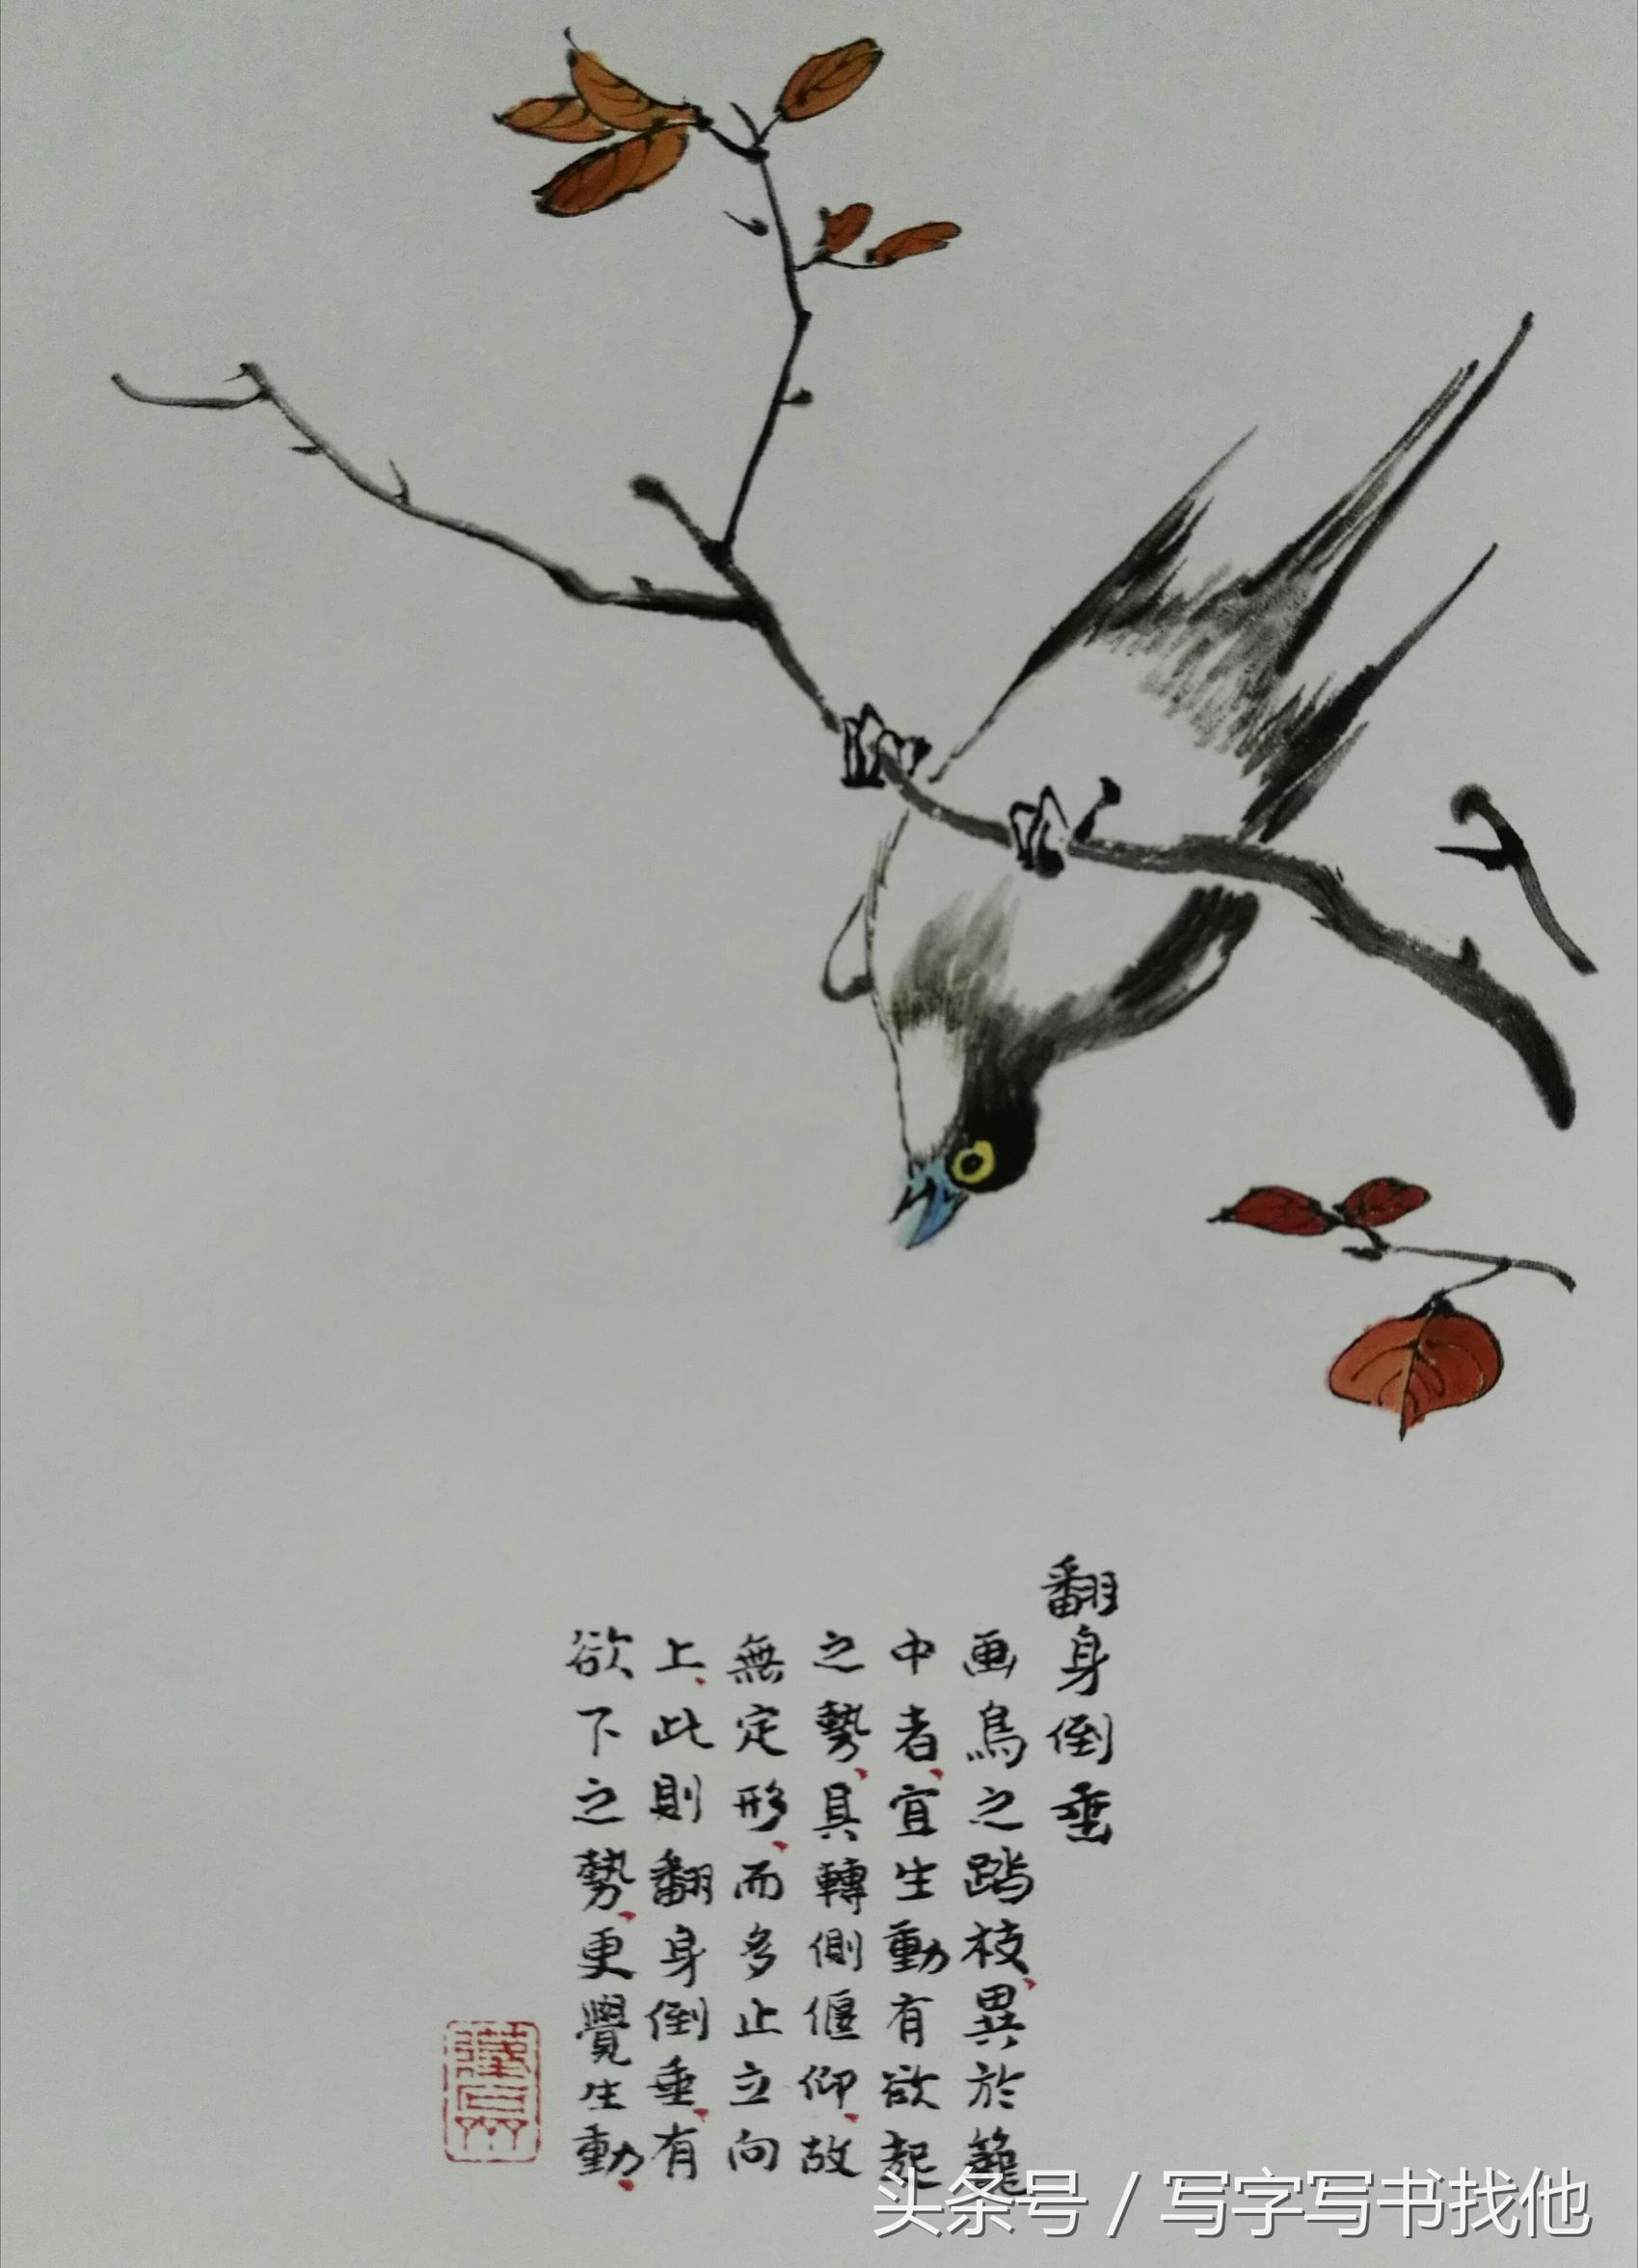 翻身倒垂
画鳥之踏枝、異於籠
中者、宜生動有欲起
之勢、具轉側偃仰、故
無定形、而多止立向
上、此則翻身倒垂、有
欲下之勢、更覺生動、
头条号 / 写字写书找他